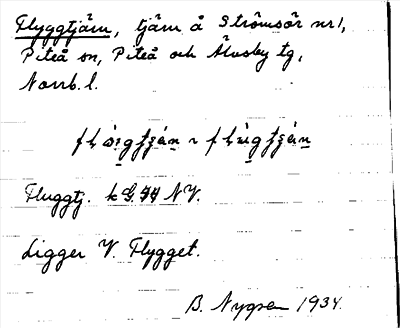 Flyggtjärn, tjärn å Strömsör nr 1,
Piteå sn, Piteå och Älvsby tg,
Norrb. l.
Fluggtj. k G.44 NV.
Ligger V. Flygget.
B. Nygren 1934.